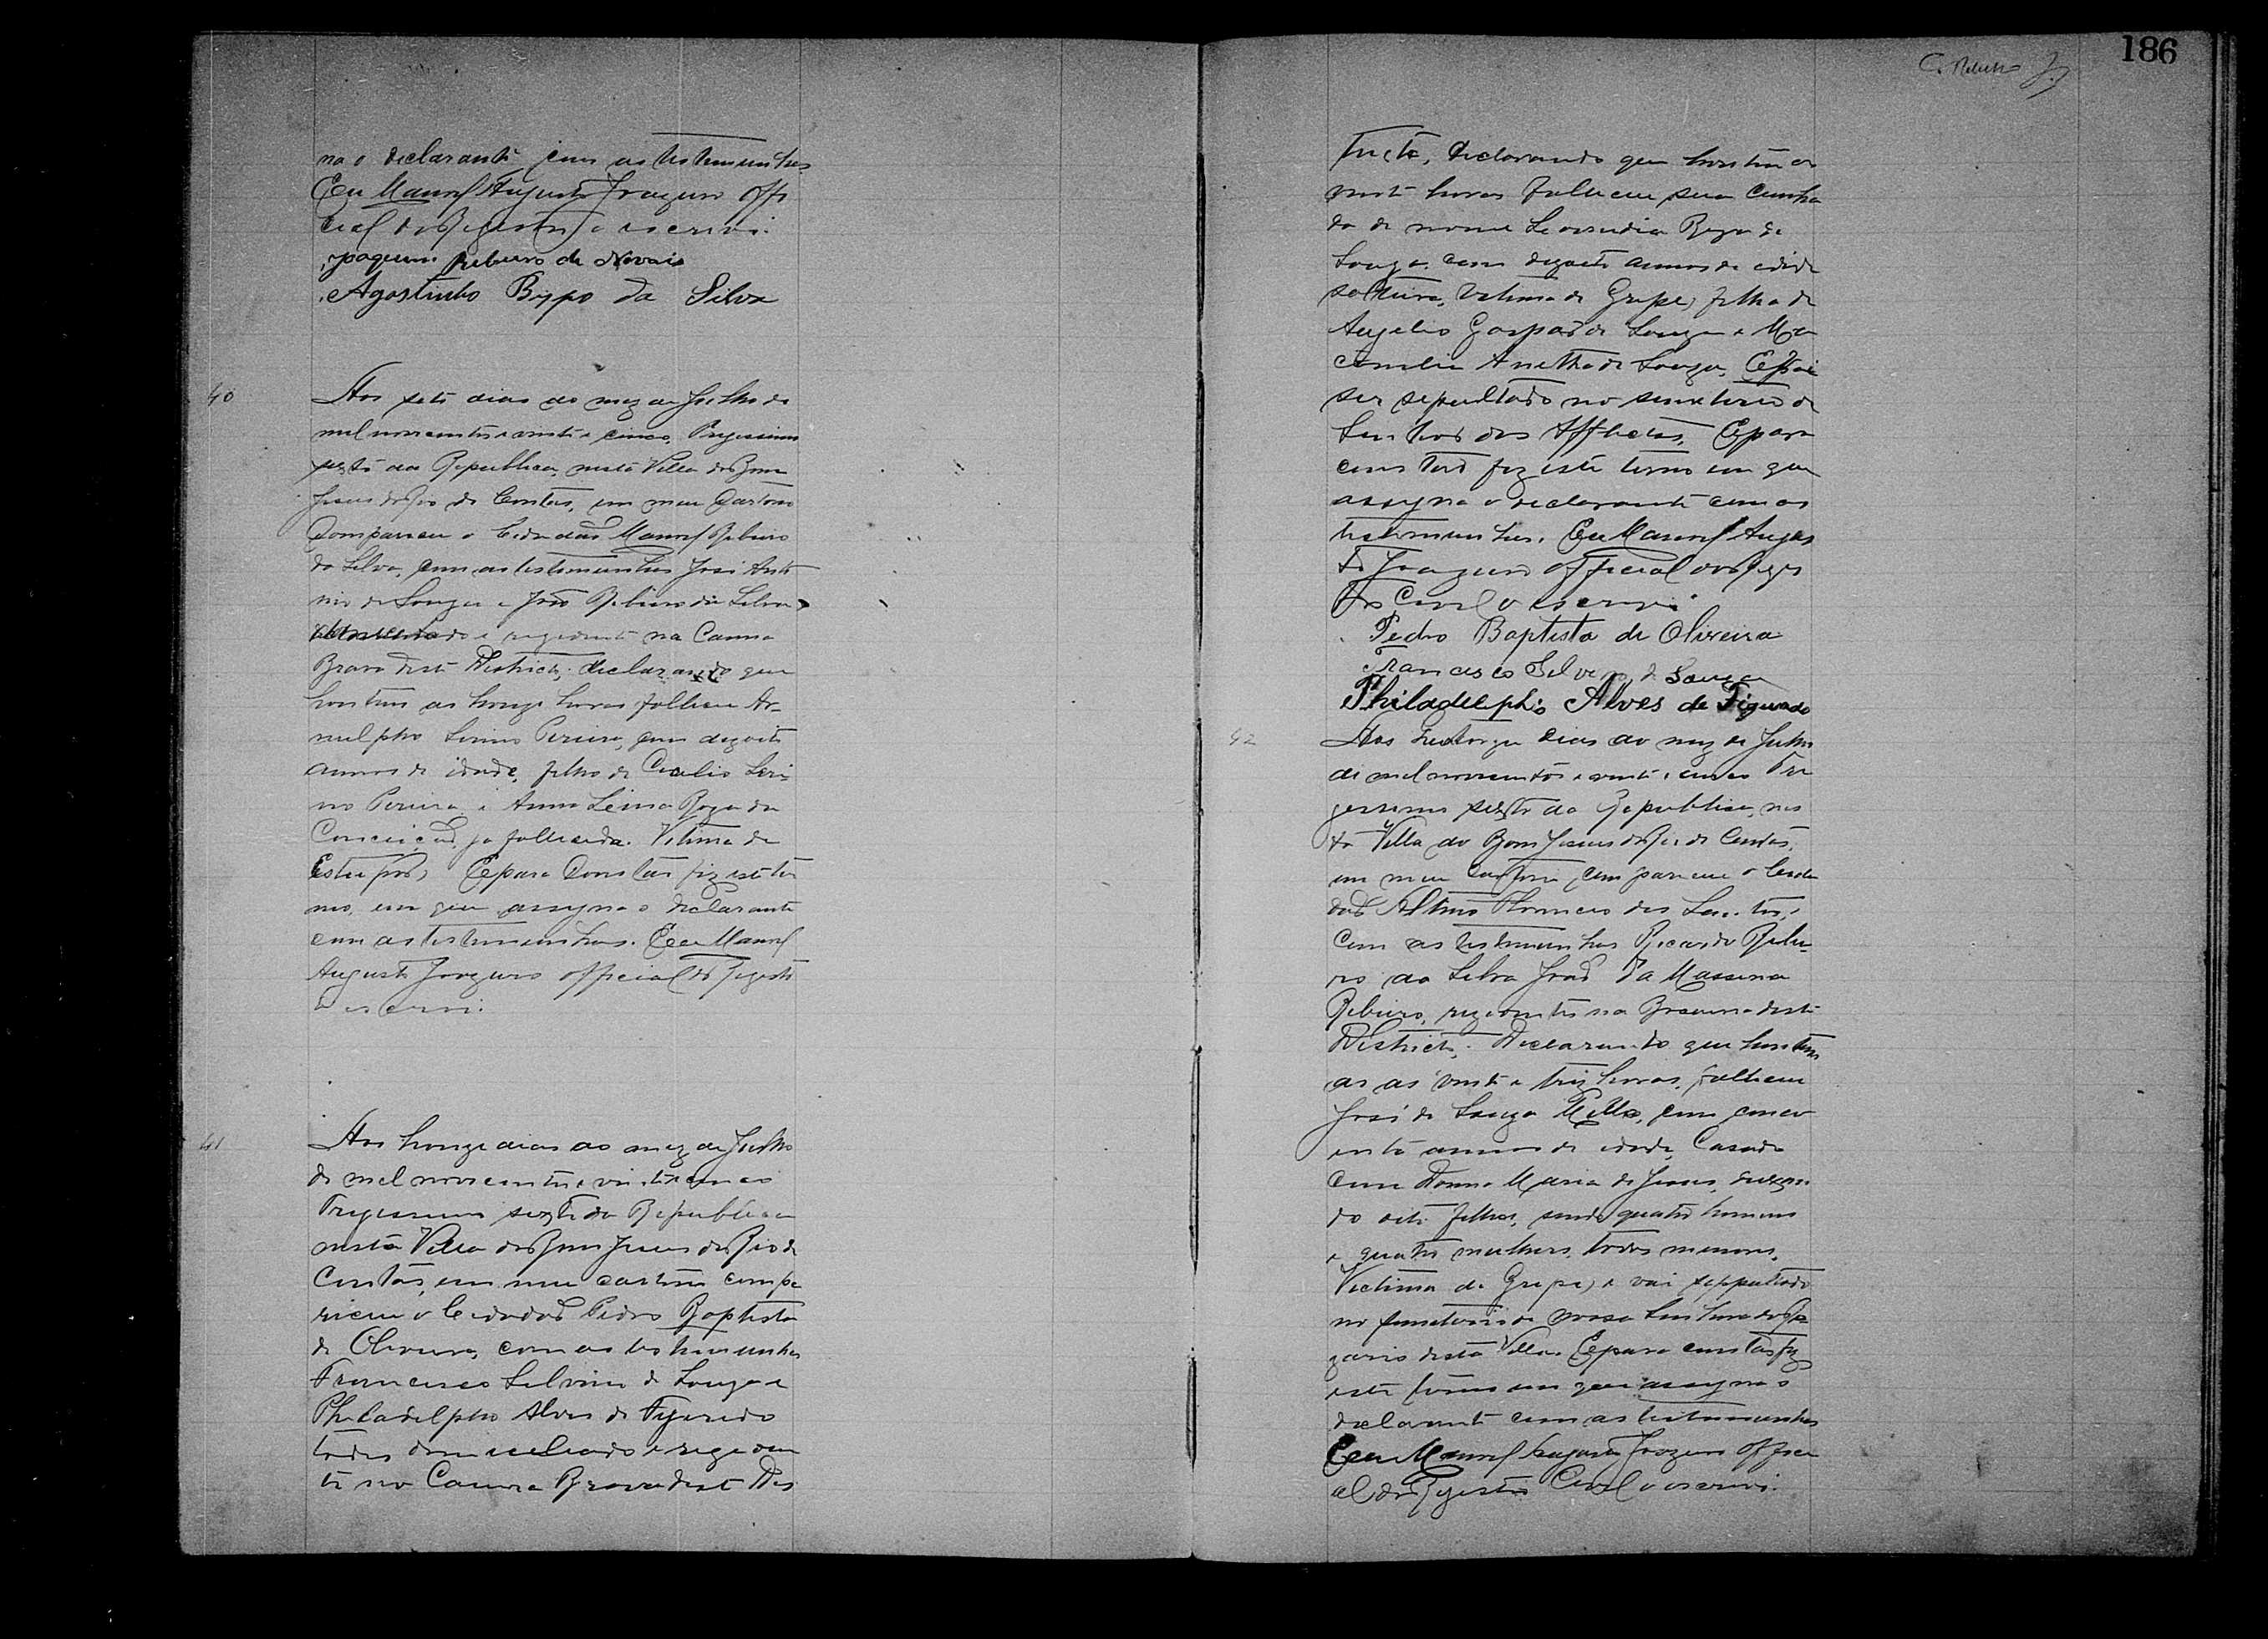 na o declarante com as testemunhas
Eu Manoel Augusto Joazeiro offi
cial do Registro o escrevi.
Joaquim Ribeiro de Novais
Agostinho Bispo da Silva
40
Aos sete dias do mez de Julho de
mil novecentos e vinte e cinco, Trigessimo
sexto da Republica, nesta Villa do Bom
Jesus do Rio de Contas, em meu Cartorio
Compareceu o Cidadão Manoel Ribeiro
da Silva, com as testemunhas José Anto
nio de Souza e João Ribeiro da Silva
e rezidente na Canna
Brava deste Districto, declarando que
hontem as honze horas falleceu Ar-
nulpho Sirino Pereira, com dezoito
annos de idade, filho de Siri
no Pereira e Anna Roza da
Conceição, ja fallecida. Vitima de
Estupor, E para Constar fiz este ter
mo, em que assigna o declarante
com as testemunhas. Eu Manoel
Augusto Joazeiro official do Registo
o escrevi.
41
Aos honze dias do mez de Julho
de mil novecentos e vinte e cinco
Trigessimo sexto da Republica
nesta Villa do Bom Jesus do Rio de
Contas, em meu cartorio compa
riceu o Cidadão Pedro Baptista
de Oliveira, com as testemunhas
Francisco Silvino de Souza e
Philadelpho Alves de Figeredo
todos domiciliado e reziden
te no Canna Brava dest Dis
186
tricto, declarando que hontem as
vinte horas falleceu sua Cunha
da de nome Leocadia Roza de
Souza, com dezoito annos de idade
solteira, Vitima de Gripe, filha de
Angelio Gaspar de Souza e Ma
de Souza, E vai
ser sepultado no semeterio de
Senhor dos Afflictos, E para
constar fiz este termo em que
assigna o declarante com as
testemunhas. Eu Manoel Augus
to Joazeiro official do Regis
tro Civil o escrevi
Pedro Baptista de Oliveira
Francisco Silvino de Souza
Philadelpho Alves de Figueredo
42
Aos quatorze dias do mez de Julho
de mil novecentos e vinte e cinco Tri
gessimo sexto da Republica, nes
ta Villa do Bom Jesus do Rio de Contas,
em meu Cartorio, compareceu o Cida
dão Altino dos Santos,
Com as testemunhas Ricardo Ribei-
ro da Silva João da
Ribeiro, rezidentes na deste
Districto. Declarando que hontem
as as vinte e trez horas, falleceu
José de Souza Mello, com cinco
enta annos de idade, Casado
Com Donna Maria de Jesus, deixan
do oito filhos, sendo quatro homens
e quatro mulheres, todos menores.
Victima de Gripe, e vai seppultado
no semeterio de Nossa Senhora do Ro
zario desta Villa. E para constar fiz
este termo em que assigna o
declarante com as testemunhas
Eu Manoel Augusto Joazeiro offici
al do Registro Civil o escrevi.